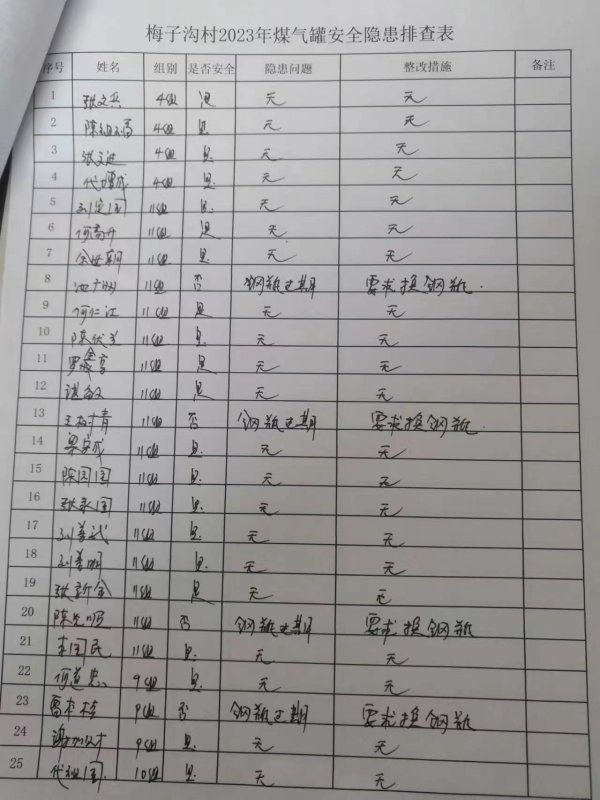 梅子沟村2023年煤气罐安全隐患排查表
序号 姓名 组别 是否安全 隐患问题 整改措施 备注
1 张文兵 4组 是 无 无
2 4组 是 无 无
3 张文进 4组 是 无 无
4 4组 是 无 无
5 刘定国 11组 是 无 无
6 何高升 11组 是 无 无
7 余世朝 11组 是 无 无
8 11组 否 钢瓶过期 要求换钢瓶.
9 何仁江 11组 是 无 无
10 陈代兰 11组 是 无 无
11 11组 是 无 无
12 11组 是 无 无
13 11组 否 钢瓶过期 要求换钢瓶.
14 梁安成 11组 是 无 无
15 陈国国 11组 是 无 无
16 张永国 11组 是 无 无
17 刘善武 11组 是. 无 无
18 刘善明 11组 是. 无 无
19 张新全 11组 是 无 无
20 11组 否 钢瓶过期 要求换钢瓶
21 李国民 11组 是. 无 无
22 何道忠 9组 是. 无 无
23 9组 否 钢瓶过期 要求换钢瓶
24 9组 是. 无 无
25 代祖国 10组 是. 无 无